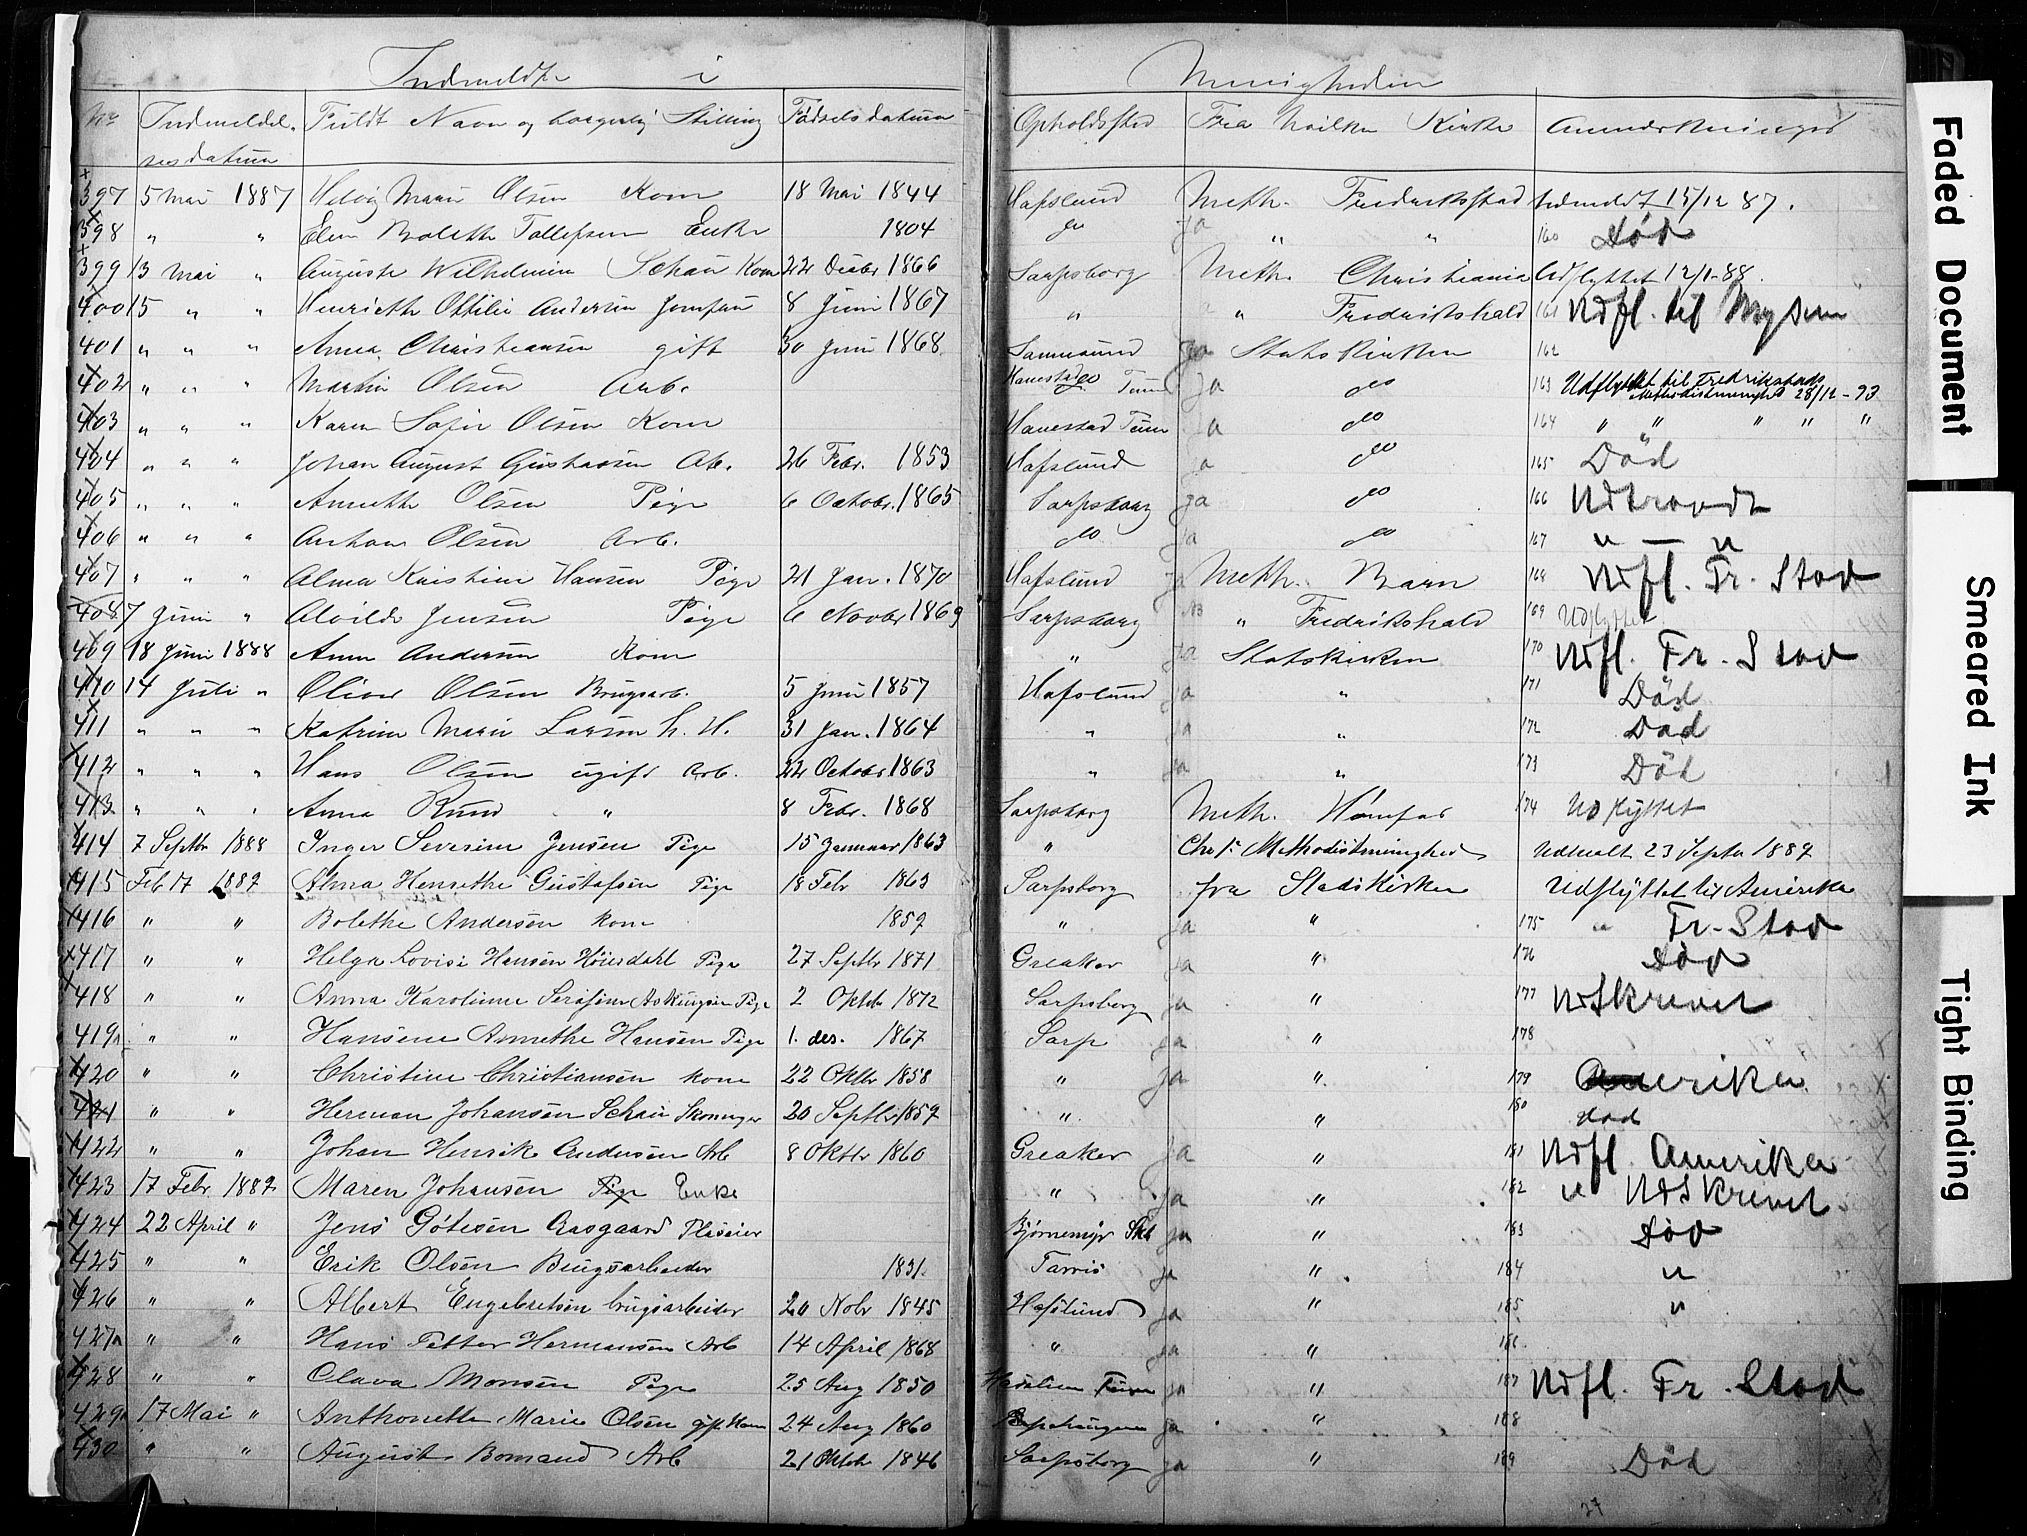 Indmeldte i Menigheden
No Indmeldelsesdatum Fuldt Navn og borgerlig Stilling Fødselsdatum Opholdssted Fra hvilken Kirke Anmærkninger
397 5 Mai 1887 Helvig Marie Olsen Kone 18 Mai 1844 Hafslund Meth. Frederikstad Udmeldt 15/12 87.
398 " " Elen Bolette Tollefsen Enke 1804 do Ja " " 160 Død
399 13 Mai " Auguste Wilhelmine Schau Kone 22 Decbr 1866 Sarpsborg Meth. Christiania Udflyttet 12/1-88.
400 15 " " Henriette Ottilie Andersen Jomfru 8 Juni 1867 " " Fredrikshald 161 Udfl. til Mysen
401 " " " Anna Christiansen gift 30 Juni 1868 Sannesund Ja Statskirken 162
402 " " " Martin Olsen Arb. Hanestad Tune Ja do 163 Udflyttet til Fredrikstads Methodistmenighed 28/12-93
403 " " " Karen Sofie Olsen Kone Hanestad Tune Ja do 164 " " " " "
404 " " " Johan August Gustavsen Ab. 26 Febr. 1853 Hafslund Ja do 165 Död
405 " " " Annette Olsen Pige 6 October 1865 Sarpsborg Ja do 166 Udtraadt
406 " " " Anton Olsen Arb. do Ja do 167 " — "
407 " " " Alma Kristine Hansen Pige 21 Jan. 1870 Hafslund Ja Meth. Barn 168 Udfl. Fr. Stad
408 7 Juni " Alvilde Jensen Pige 6 Novbr 1869 Sarpsborg " Fredrikshald 169 Udflyttet
409 18 Juni 1888 Anne Andersen Kone " Ja Statskirken 170 Udfl. Fr. Stad
410 14 Juli " Oliver Olsen Brugsarb. 5 Juni 1857 Hafslund Ja " 171 Död
411 " " " Katrine Marie Larsen h. H. 31 Jan. 1864 " Ja " 172 Död
412 " " " Hans Olsen ugift Arb. 22 Octobr 1863 " Ja " 173 Död
413 " " " Anna Rund " 8 Febr. 1868 Sarpsborg Meth. Hønefos 174 Udflyttet
414 7 Septbr 1888 Inger Severine Jensen Pige 15 Januar 1863 " Chr. 1ste Methodistmenighed Udmeldt 23 Septr 1889
415 Feb 17 1889 Alma Henrethe Gustafsen Pige 18 Febr 1863 Sarpsborg fra Stadskirken Udflyttet til Amerika
416 " " Bolethe Andersen kone 1859 " Ja " 175 " Fr. Stad
417 " " Helga Lovise Hansen Höiesdahl Pige 27 Septbr 1871. Greaker Ja " 176 Død
418 " " Anna Karoline Serafine Pige 2 Oktbr 1872 Sarpsborg Ja " 177 Udskrevet
419 " " Hansene Annethe Hansen Pige 1. des. 1867 Sarp Ja " 178
420 " " Christine Christiansen kone 22 Oktbr 1858 " Ja " 179 Amerika
421 " " Herman Johansen Schau Skomager 20 Septbr 1859 " " 180 död
422 " " Johan Henrik Andersen Arb 8 Oktbr 1860 Greaker Ja " 181 Udfl. Amerika
423 17 Febr. 1889 Maren Johansen Pige Enke " Ja " 182 " Udskrevet
424 22 April " Jens Götesen Aasgaard Bjørnemyr Skb Ja " 183 Død
425 " " Erik Olsen Brugsarbeider 1831. Ja " 184 "
426 " " Albert Engebretsen brugsarbeider 20 Nobr 1845 Hafslund Ja " 185 "
427 " " Hans Petter Hermansen Arb 14 April 1868 " Ja " 186
428 " " Olava Monsen Pige 25 Aug 1850 Tune Ja " 187 Udfl. Fr. Stad
429 17 Mai " Anthonette Marie Olsen gift kone 24 Aug 1860 Ja " 188
430 " " August Bomand Arb 21 Oktbr 1846 Sarpsborg Ja " 189 Död
27
Faded Document
Smeared Ink
Tight Binding